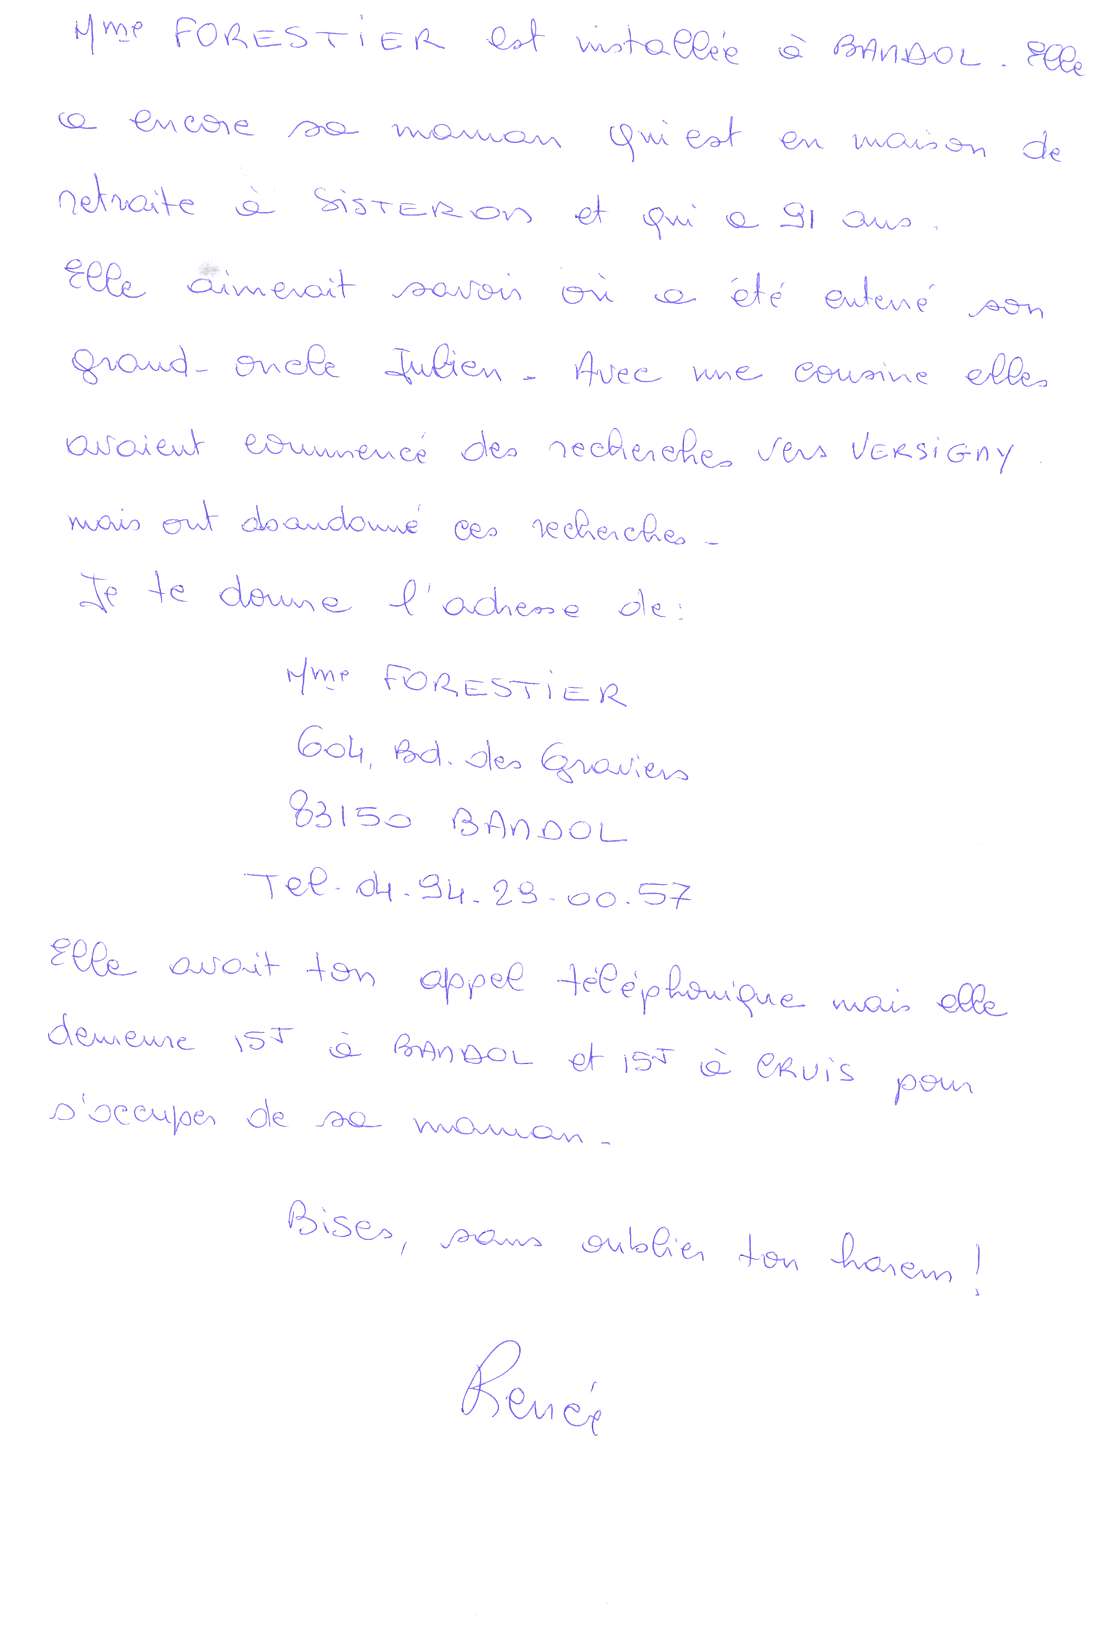 Mme FORESTIER est installée à BANDOL. Elle
a encore sa maman qui est en maison de
retraite à SISTERON et qui a 91 ans.
Elle aimerait savoir où a été enterré son
grand-oncle Julien - Avec une cousine elles
avaient commencé des recherches vers VERSIGNY
mais ont abandonné ces recherches -
Je te donne l'adresse de :
Mme FORESTIER
604, Bd. des Graviers
83150 BANDOL
Tel. 04.94.29.00.57
Elle avait ton appel téléphonique mais elle
demeure 15J à BANDOL et 15J à CRUIS pour
s'occuper de sa maman -
Bises, sans oublier ton harem !
Renée